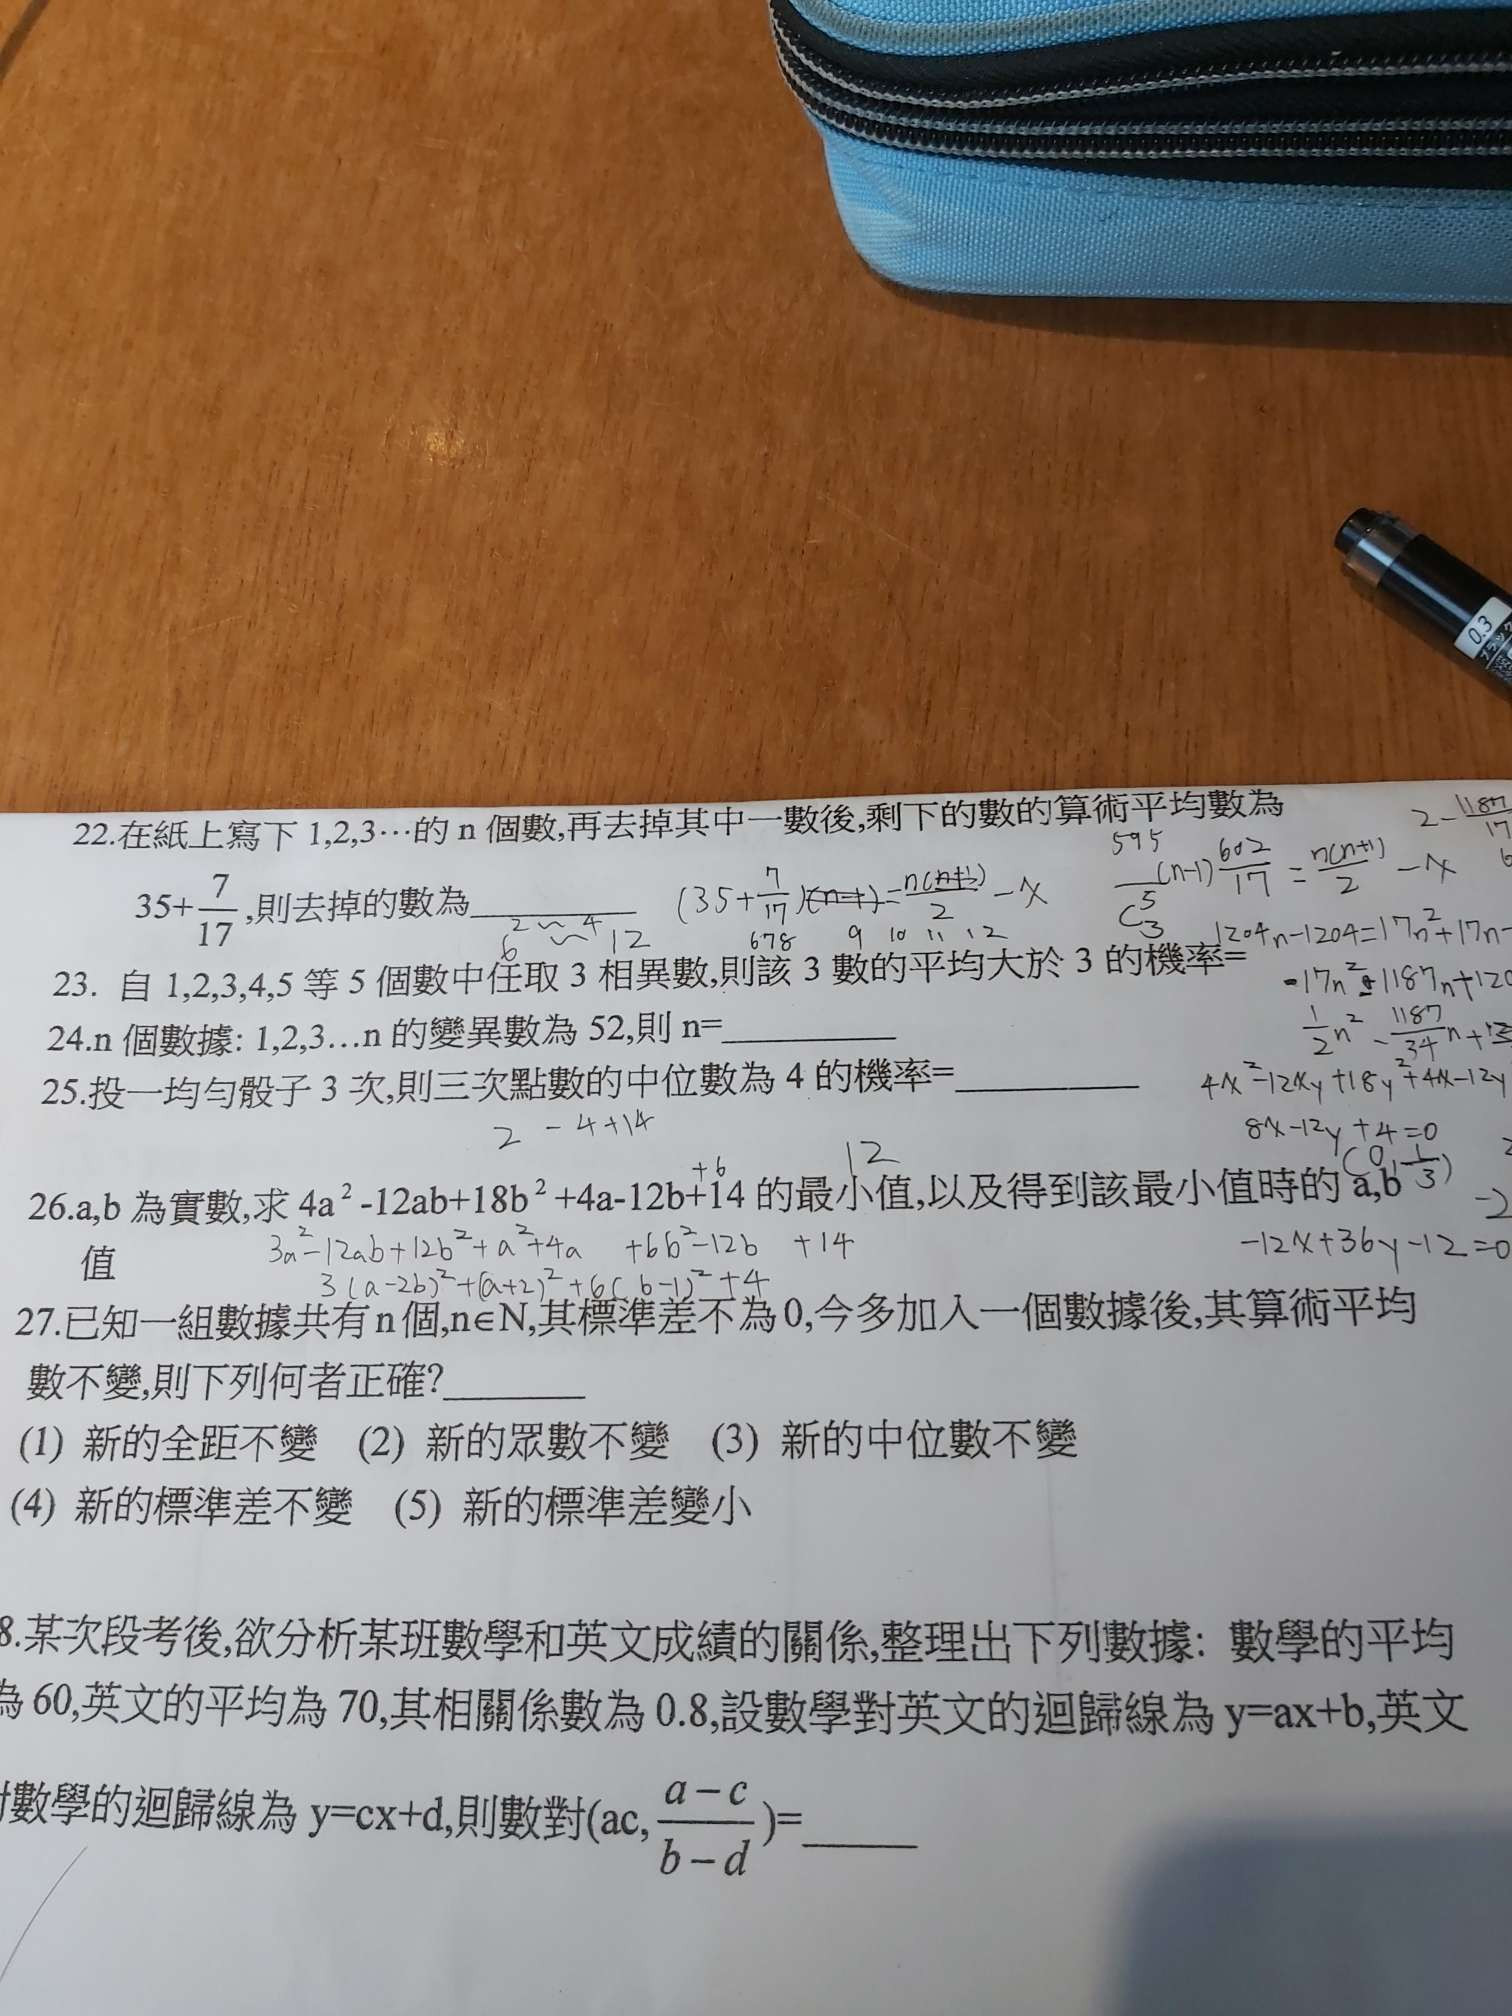 22.在紙上寫下 1,2,3⋯的 n 個數,再去掉其中一數後,剩下的數的算術平均數為
35+7/17,則去掉的數為________
(35+7/17)(n-1)=n(n+1)/2 -x
595
(n-1)602/17 = n(n+1)/2 -x
2-1187/17
C5 3
6 2~~4 12
678 9 10 11 12
1204n-1204=17n²+17n-
23. 自 1,2,3,4,5 等 5 個數中任取 3 相異數,則該 3 數的平均大於 3 的機率=
24.n 個數據: 1,2,3…n 的變異數為 52,則 n=________
1/2n² - 1187/34n+
25.投一均勻骰子 3 次,則三次點數的中位數為 4 的機率=________
4x²-12xy+18y²+4x-12y
2 -4+14
8x-12y+4=0
+6
12
(0,1/3)
26.a,b 為實數,求 4a²-12ab+18b²+4a-12b+14 的最小值,以及得到該最小值時的 a,b
值
3a²-12ab+12b²+a²+4a +6b²-12b +14
-12x+36y-12=0
3(a-2b)²+(a+2)²+6(b-1)²+4
27.已知一組數據共有 n 個,n∈N,其標準差不為 0,今多加入一個數據後,其算術平均
數不變,則下列何者正確?________
(1) 新的全距不變 (2) 新的眾數不變 (3) 新的中位數不變
(4) 新的標準差不變 (5) 新的標準差變小
8.某次段考後,欲分析某班數學和英文成績的關係,整理出下列數據: 數學的平均
為 60,英文的平均為 70,其相關係數為 0.8,設數學對英文的迴歸線為 y=ax+b,英文
對數學的迴歸線為 y=cx+d,則數對(ac, a-c/b-d)=______
0.3